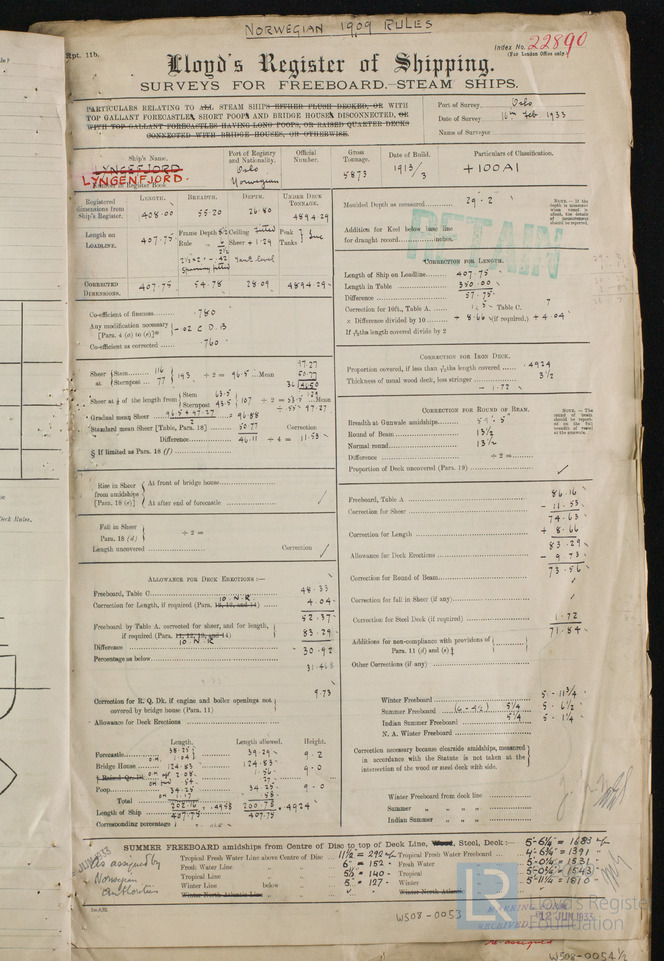 NORWEGIAN 1909 RULES
Rpt. 11b.
Index No. 22890
(For London Office only.)
Lloyd's Register of Shipping.
SURVEYS FOR FREEBOARD.—STEAM SHIPS.
PARTICULARS RELATING TO ALL STEAM SHIPS EITHER FLUSH DECKED, OR WITH
TOP GALLANT FORECASTLES, SHORT POOPS AND BRIDGE HOUSES DISCONNECTED, OR
WITH TOP GALLANT FORECASTLES HAVING LONG POOPS, OR RAISED QUARTER DECKS
CONNECTED WITH BRIDGE HOUSES, OR OTHERWISE.
Port of Survey Oslo
Date of Survey 16th Feb 1933
Name of Surveyor
Ship's Name.
LYNGSFJORD
LYNGENFJORD.
Number in Register Book
Port of Registry and Nationality.
Oslo
Norwegian
Official Number.
Gross Tonnage.
5873
Date of Build.
1913/3
Particulars of Classification.
+100A1
LENGTH. BREADTH. DEPTH. UNDER DECK TONNAGE.
Registered dimensions from Ship's Register. 408.00 55.20 26.80 4894.29
Length on LOADLINE. 407.75 Frame Depth Ceiling fitted Peak Tanks
Rule Sheer + 1.29
Sparring fitted Tank level
CORRECTED DIMENSIONS. 407.75 54.78 28.09 4894.29
Co-efficient of fineness .780
Any modification necessary [Para. 4 (a) to (e)]* -.02 C.D.B
Co-efficient as corrected .760
Sheer at Stem 116 Sternpost 77 } 193 ÷ 2 = 96.5 Mean
Sheer at 1/8 of the length from Stem 63.5 Sternpost 43.5 } 107 ÷ 2 = 53.5 Mean
÷ .55 97.27
Gradual mean Sheer 96.5 + 97.27 / 2 = 96.88
Standard mean Sheer [Table, Para. 18] 50.77 Correction
Difference 46.11 ÷ 4 = 11.53
§ If limited as Para. 18 (f)
Rise in Sheer from amidships [Para. 18 (e)] At front of bridge house
At after end of forecastle
Fall in Sheer Para. 18 (d) ÷ 2 =
Length uncovered Correction
ALLOWANCE FOR DECK ERECTIONS :—
Freeboard, Table C 48.33
Correction for Length, if required (Para. 12, 13, and 14) 10 N.R 4.04
52.37
Freeboard by Table A, corrected for sheer, and for length, if required (Para. 11, 12, 13, and 14) 10 N.R 83.29
Difference 30.92
Percentage as below
9.73
Correction for R. Q. Dk. if engine and boiler openings not covered by bridge house (Para. 11)
Allowance for Deck Erections
Length. Length allowed. Height.
Forecastle 38.25 39.29 9.2
O.H. 1.04
Bridge House 124.83 124.83 9.0
† Raised Qr. Dk.
Poop 34.25 34.25 9.0
O.H. 1.17
Total 202.16 .4958 200.78 .4924
Length of Ship 407.75 407.75
Corresponding percentage
Moulded Depth as measured 29.2
NOTE. — If the depth is measured when vessel is afloat, the details of measurement should be reported.
Addition for Keel below base line for draught record inches.
RETAIN
CORRECTION FOR LENGTH.
Length of Ship on Loadline 407.75
Length in Table 350.00
Difference 57.75
Correction for 10ft., Table A. 1.5 Table C. 7
× Difference divided by 10 + 8.66 (if required,) + 4.04
If 6/10ths length covered divide by 2
CORRECTION FOR IRON DECK.
Proportion covered, if less than 7/10ths length covered .4924
Thickness of usual wood deck, less stringer 3 1/2
- 1.72
CORRECTION FOR ROUND OF BEAM.
Breadth at Gunwale amidships
Round of Beam 13 1/2
Normal round 13 1/2
Difference ÷ 2 =
Proportion of Deck uncovered (Para. 19)
NOTE. — The round of beam should be reported on the full breadth of vessel at the gunwale.
Freeboard, Table A 86.16
Correction for Sheer - 11.53
74.63
Correction for Length + 8.66
83.29
Allowance for Deck Erections - 9.73
73.56
Correction for Round of Beam
Correction for fall in Sheer (if any)
Correction for Steel Deck (if required) 1.72
71.84
Additions for non-compliance with provisions of Para. 11 (d) and (e) ‡
Other Corrections (if any)
Winter Freeboard 5 - 11 3/4
Summer Freeboard 5 1/4 5 . 6 1/2
Indian Summer Freeboard 5 1/4 5 . 1 1/4
N. A. Winter Freeboard
Correction necessary because clearside amidships, measured in accordance with the Statute is not taken at the intersection of the wood or steel deck with side.
Winter Freeboard from deck line
Summer „ „ „ „
Indian Summer „ „
SUMMER FREEBOARD amidships from Centre of Disc to top of Deck Line, Wood, Steel, Deck :— 5-6 1/4 = 1683
As assigned by Norwegian Authorities
Tropical Fresh Water Line above Centre of Disc 11 1/2 = 292 Tropical Fresh Water Freeboard 4-6 3/4 = 1391
Fresh Water Line „ „ 6 = 152 Fresh Water „ 5-0 1/4 = 1531
Tropical Line „ „ 5 1/2 = 140 Tropical „ 5-0 3/4 = 1543
Winter Line below „ 5 = 127 Winter „ 5-11 1/4 = 1810
Winter North Atlantic Line „ Winter North Atlantic „
W508-0053
RECEIVED 12 JUN 1933
Lloyd's Register
Foundation
re-assigned
W508-0054 1/2